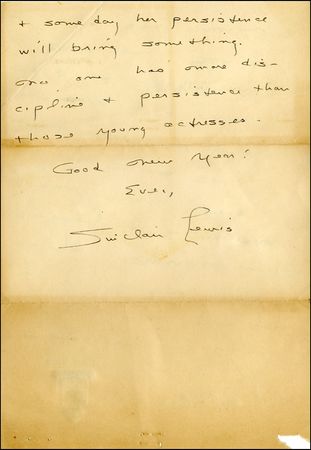 & some day her persistence
will bring something.
No one has more dis-
cipline & persistence than
those young actresses.
Good new year!
Ever,
Sinclair Lewis